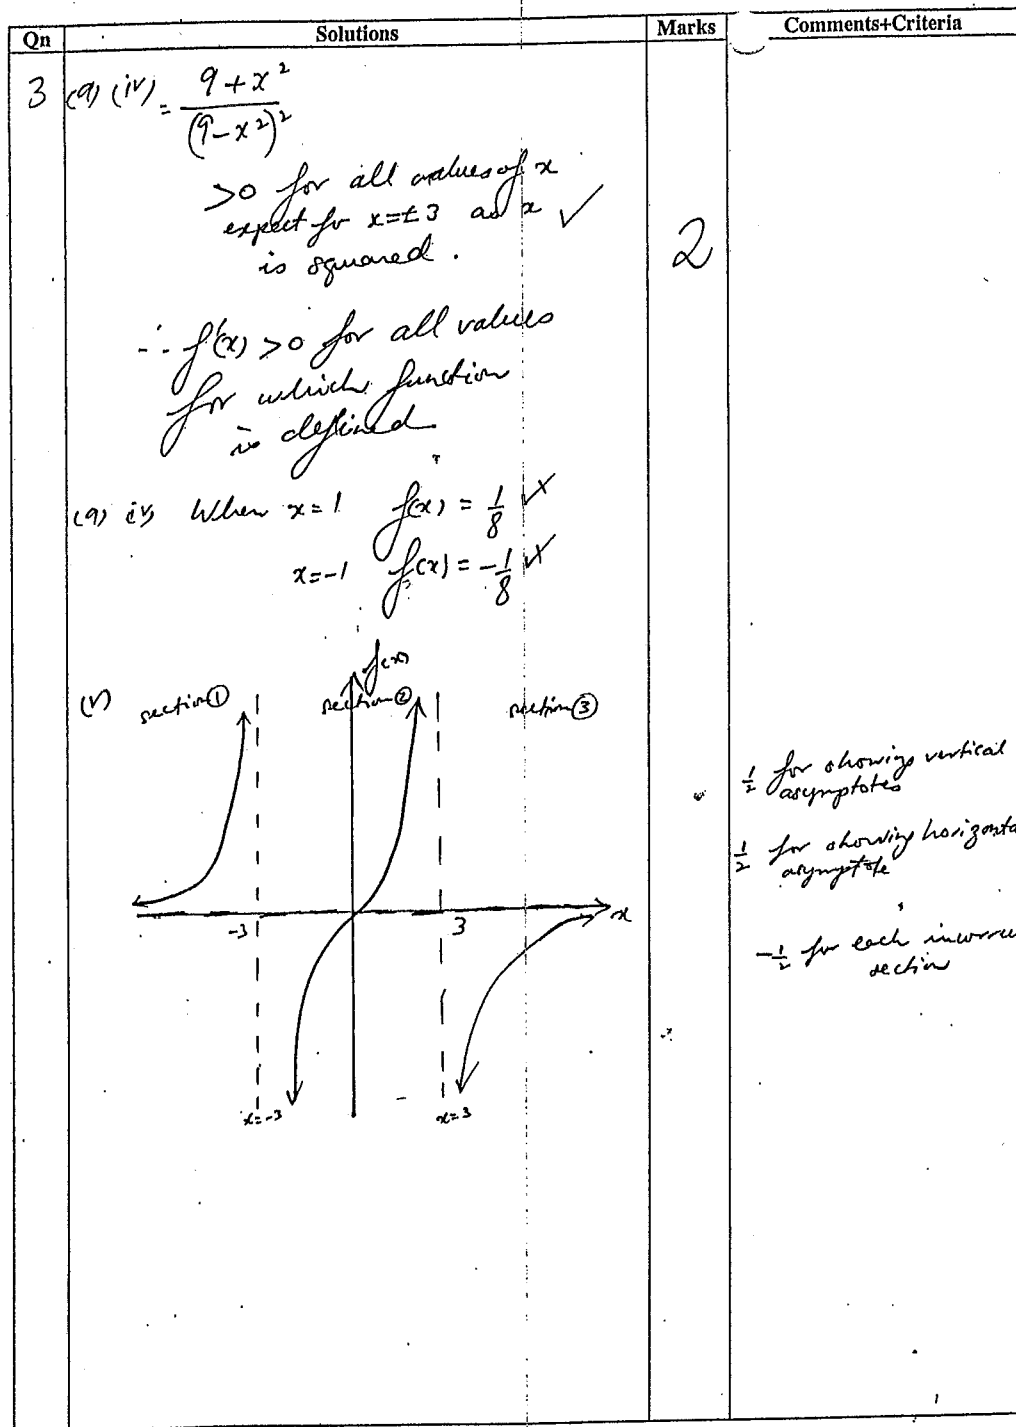 Qn Solutions Marks Comments+Criteria
3 (a) (iv) = 9+x² / (9-x²)²
>0 for all values of x
expect for x=±3 as x ✓
is squared.
2
∴ f'(x) >0 for all values
for which function
is defined
(a) iv) When x=1 f(x) = 1/8
x=-1 f(x) = -1/8
(v) section ① section ② section ③
f(x)
-3 3 x
x=-3 x=3
1/2 for showing vertical
asymptotes
1/2 for showing horizonta
asymptote
-1/2 for each incorrec
section